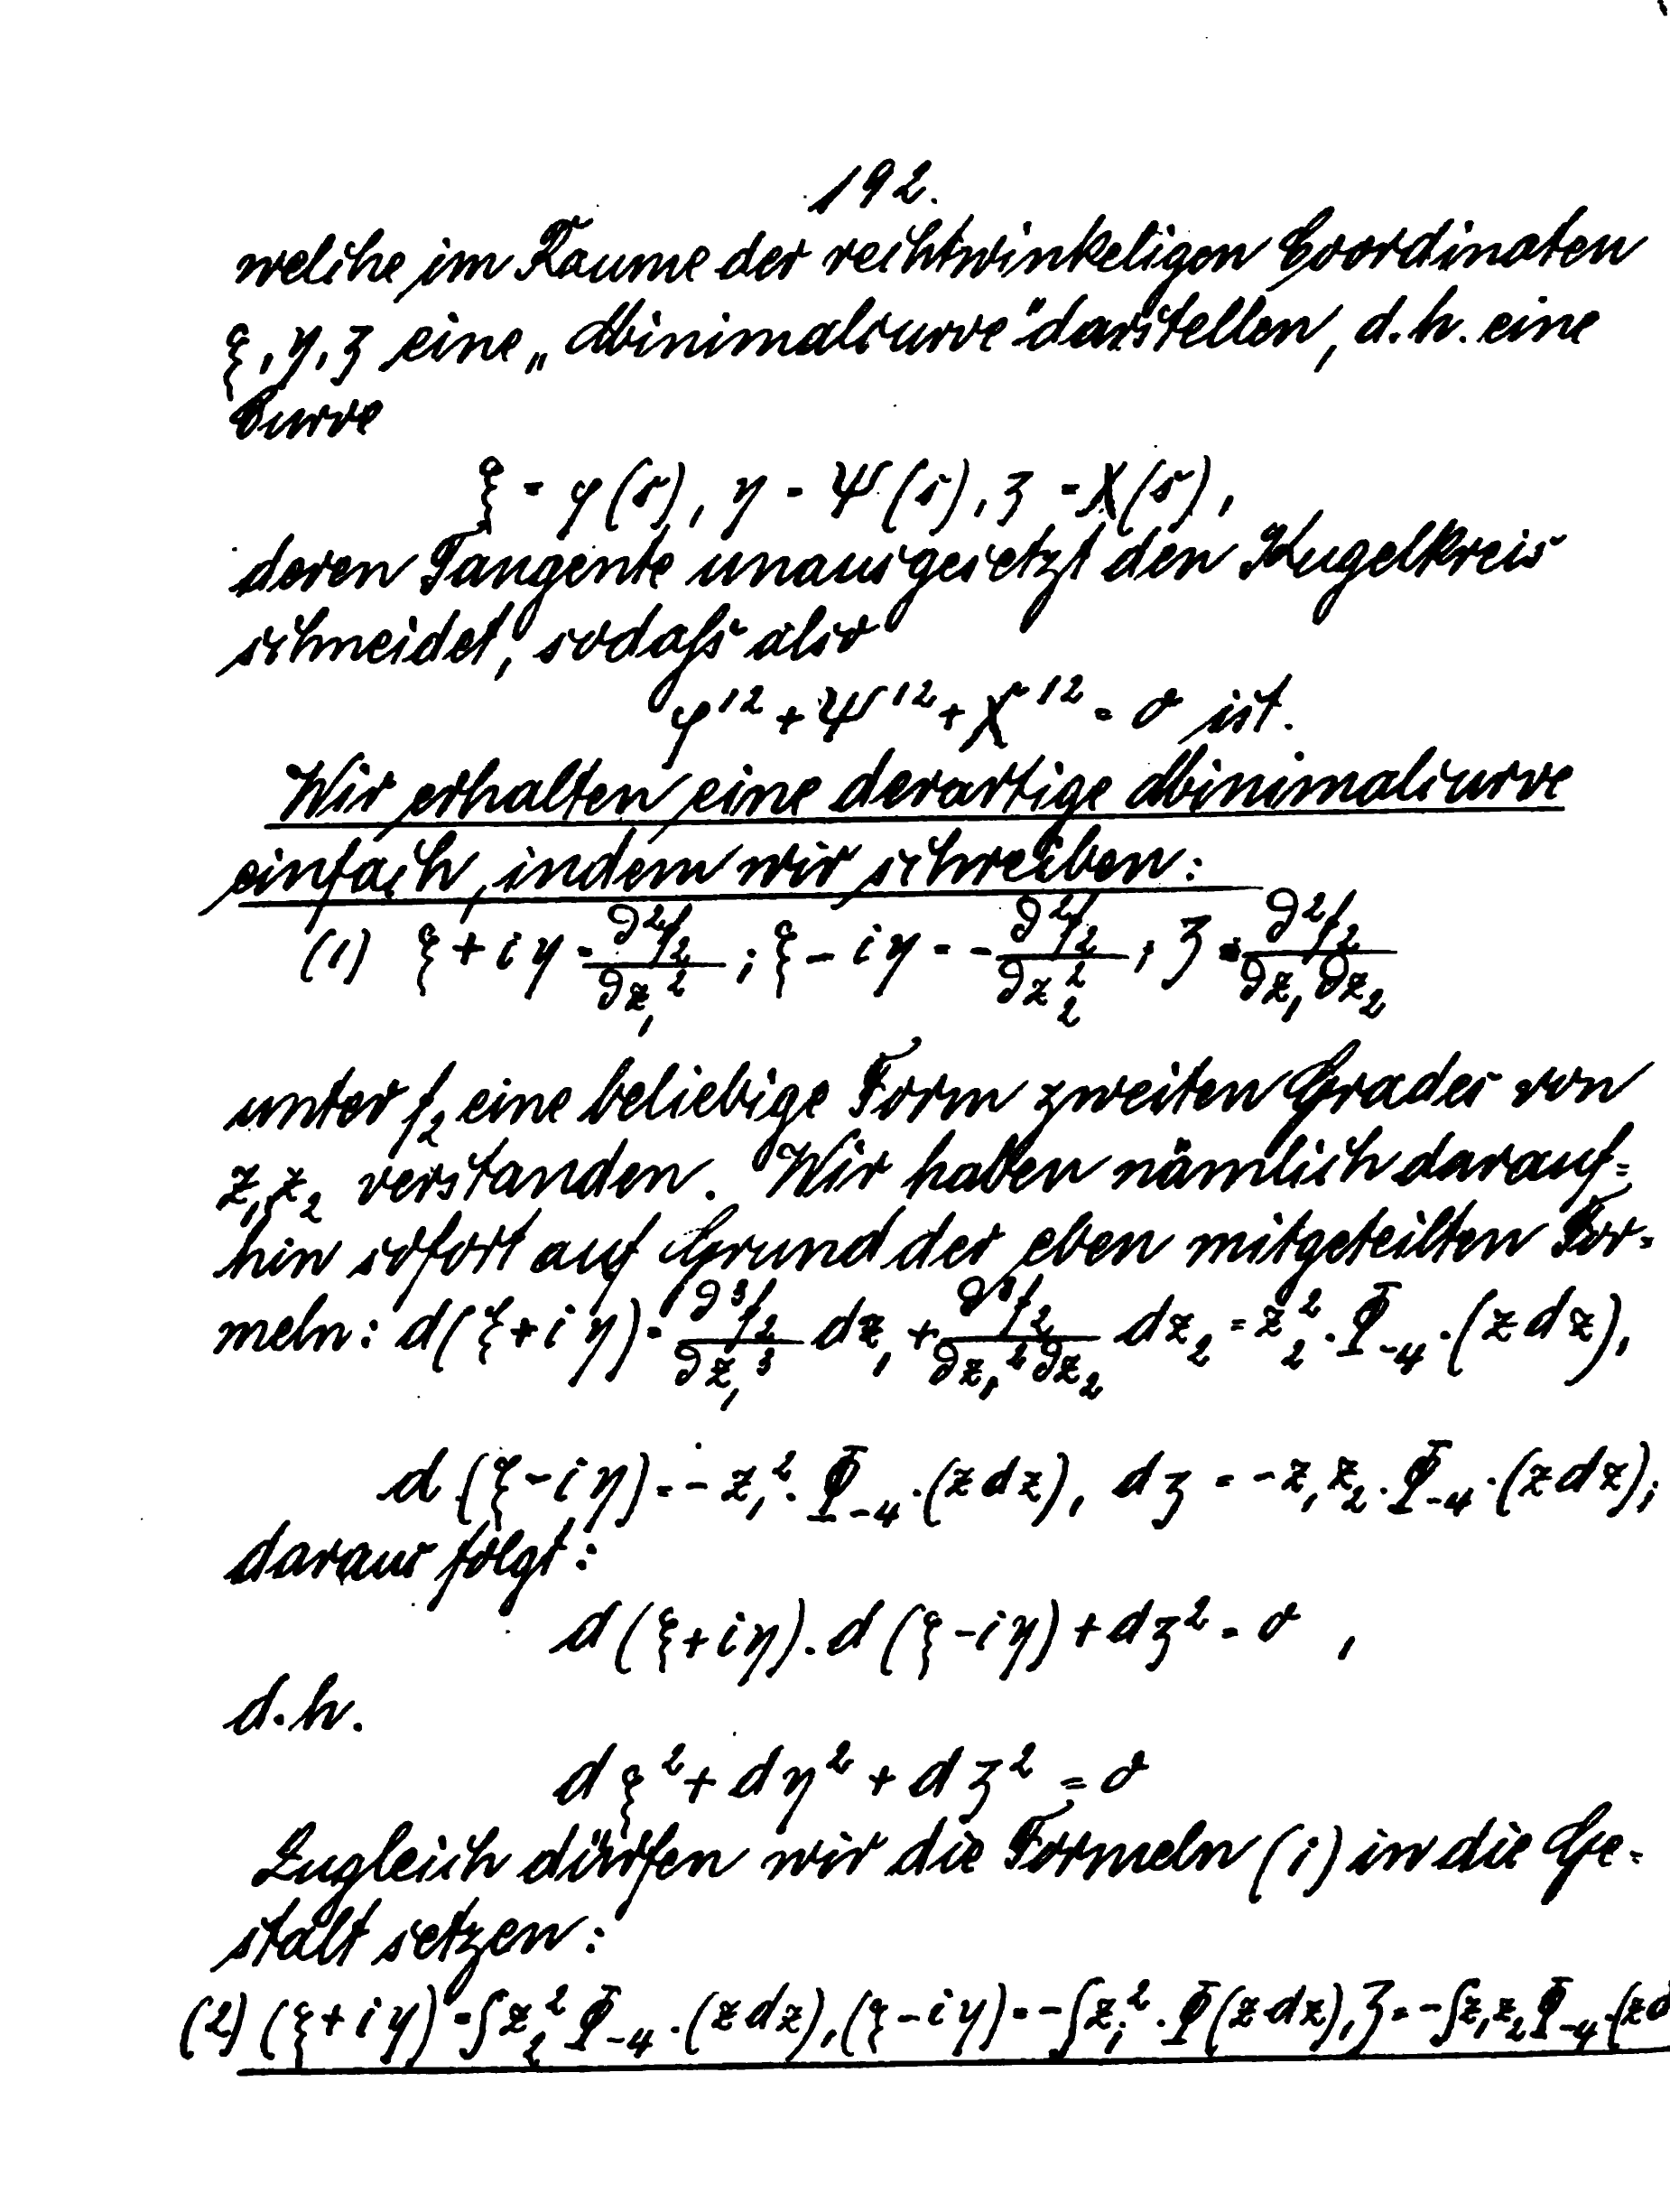 192.
welche im Raume der rechtwinkeligen Coordinaten
ξ, η, ζ eine „Minimalcurve" darstellen, d.h. eine
Curve
ξ = φ(s), η = ψ(s), ζ = χ(s),
deren Tangente unausgesetzt den Kugelkreis
schneidet, sodaſs also
φ'² + ψ'² + χ'² = 0 ist.
Wir erhalten eine derartige Minimalcurve
einfach, indem wir schreiben:
(1) ξ + iη = ∂²f₂/∂z₁² ; ξ - iη = - ∂²f₂/∂z₂² , ζ = ∂²f₂/∂z₁∂z₂
unter f₂ eine beliebige Form zweiten Grades von
z₁, z₂ verstanden. Wir haben nämlich darauf=
hin sofort auf Grund der eben mitgeteilten For=
meln: d(ξ+iη) = ∂³f₂/∂z₁³ dz₁ + ∂³f₂/∂z₁²∂z₂ dz₂ = z₂² . Φ₋₄ . (z dz),
d(ξ-iη) = - z₁² . Φ₋₄ . (z dz), dζ = - z₁z₂ . Φ₋₄ . (z dz);
daraus folgt:
d(ξ+iη) . d(ξ-iη) + dζ² = 0 ,
d.h.
dξ² + dη² + dζ² = 0
Zugleich dürfen wir die Formeln (1) in die Ge=
stalt setzen:
(2) (ξ+iη) = ∫z₂² Φ₋₄ . (z dz), (ξ-iη) = -∫z₁² . Φ(z dz), ζ = -∫z₁z₂Φ₋₄ . (z d